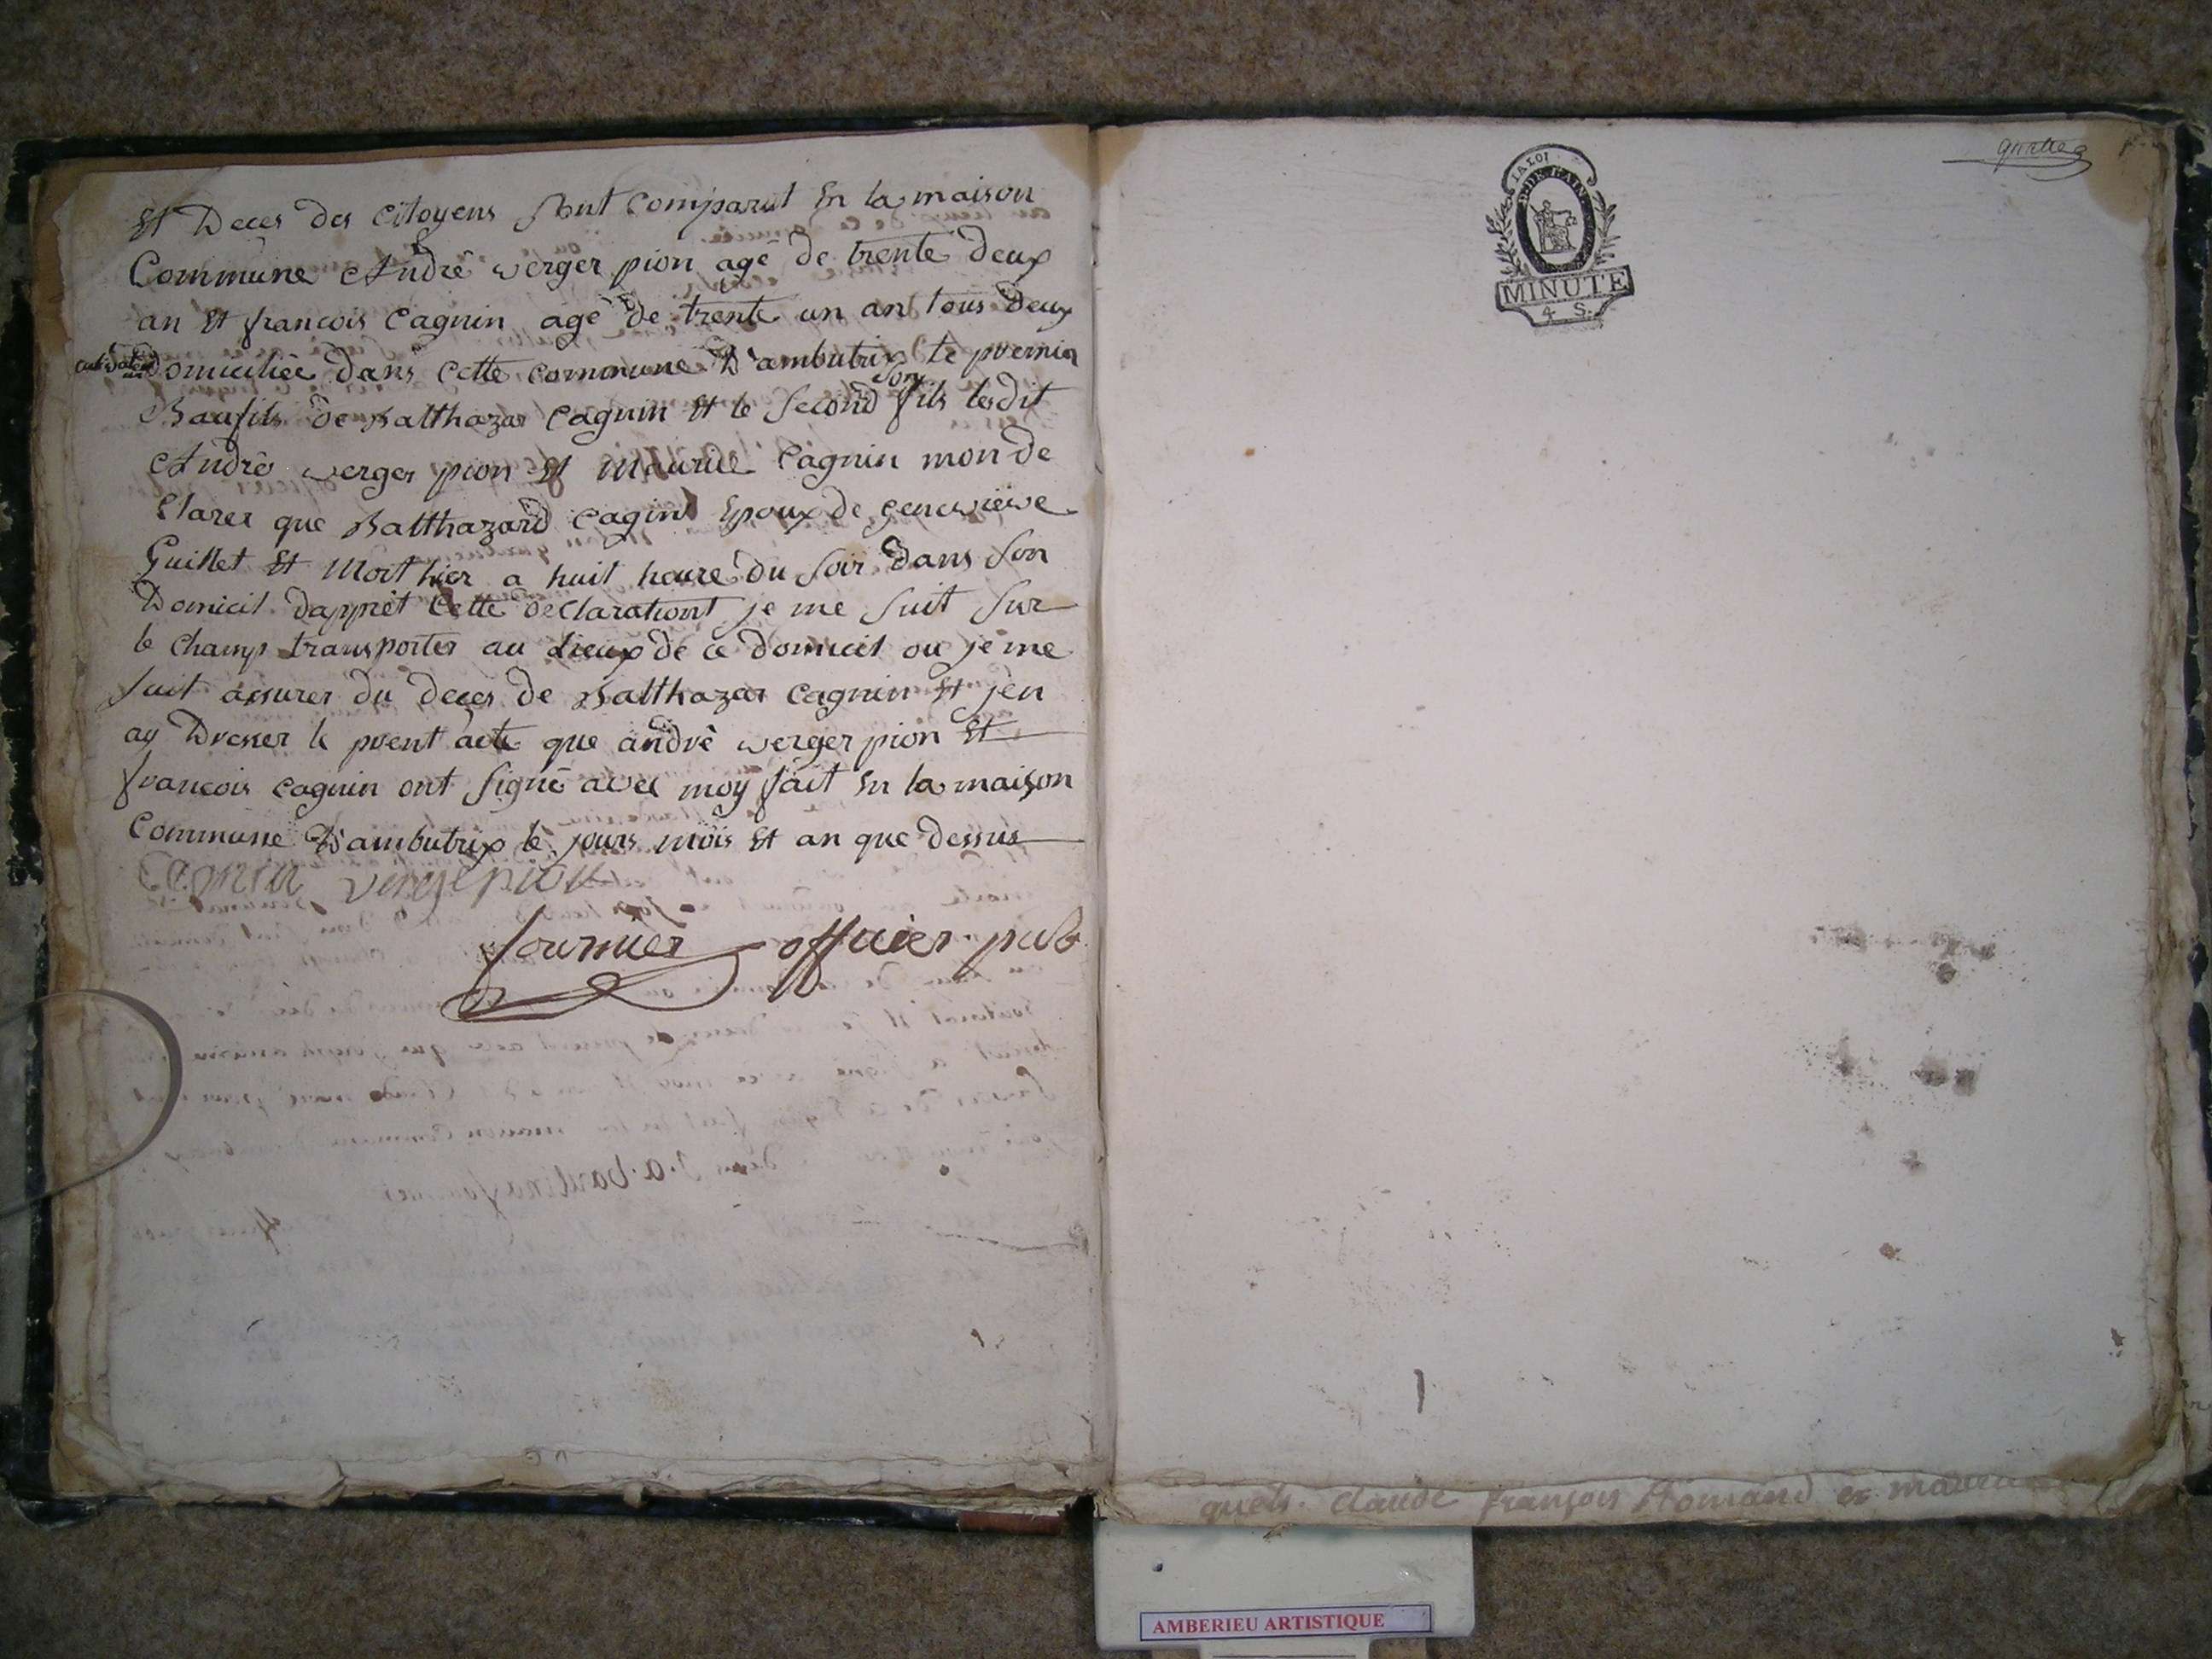 Et Deces des Citoyens sont comparut En la maison
Commune André werger pion agé de trente deux
an Et francois Cagnin agé de trente un an tous deux
domiciliée dans cette commune D'ambutrix le premier
Baufils de Balthazar Cagnin Et le second son fils lesdit
André werger pion Et Maurice Cagnin mon de
Clarer que Balthazard Cagin Epoux de geneviewe
Guillet Et Mort hier a huit heure du soir dans son
Domicil dapprêt Cette declarationt je me suit sur
le champ transporter au Lieux de ce domicil ou je me
suit assurer du decès de Balthazar Cagnin Et j'en
ay Dresser le prent acte que andrè werger pion Et
francois Cagnin ont signé avec moy fait En la maison
Commune D'ambutrix le jours mois Et an que dessus
Cagnin vergepion
fournier officier pub
quatre
LA LOI
MINUTE
4 S.
Claude françois
AMBERIEU ARTISTIQUE